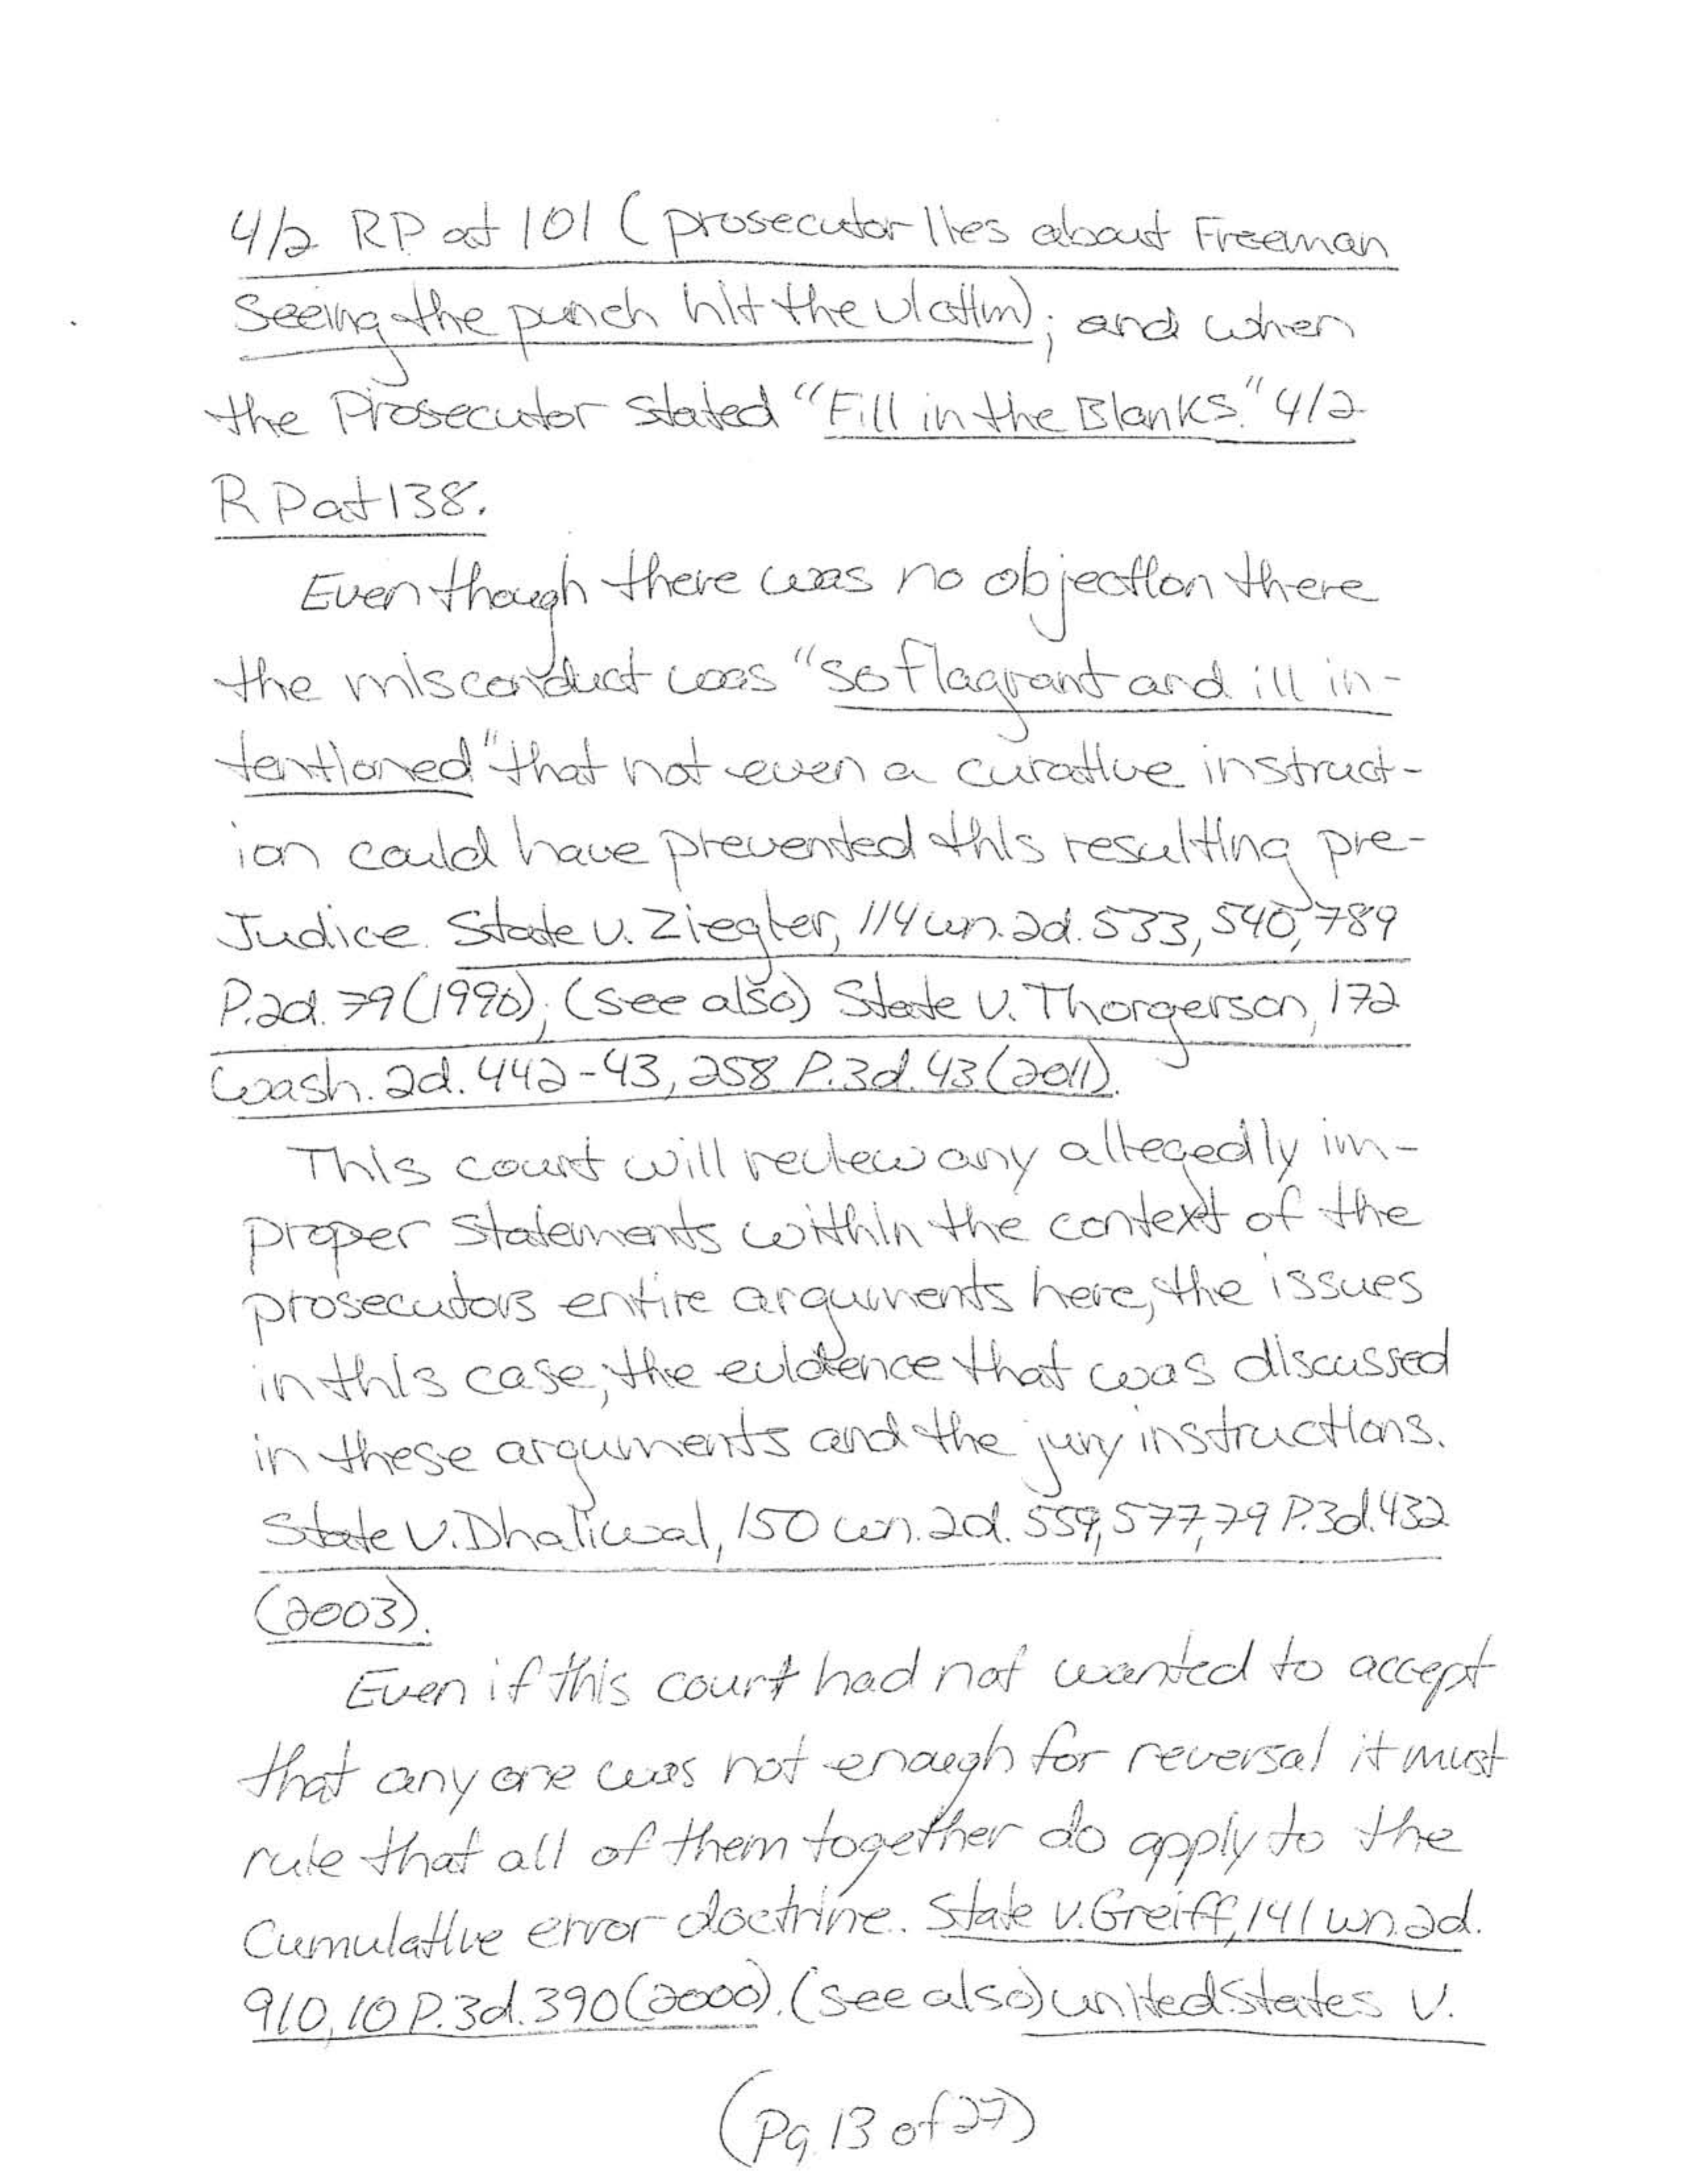 4/2 RP at 101 (prosecutor lies about Freeman
Seeing the punch hit the victim); and when
the Prosecutor stated "Fill in the Blanks." 4/2
RP at 138.
Even though there was no objection there
the misconduct was "so flagrant and ill in-
tentioned" that not even a curative instruct-
ion could have prevented this resulting pre-
Judice. State v. Ziegler, 114 wn.2d. 533, 540, 789
P.2d. 79 (1990); (see also) State v. Thorgerson, 172
Wash. 2d. 442-43, 258 P.3d. 43 (2011).
This court will review any allegedly im-
proper statements within the context of the
prosecutors entire arguments here, the issues
in this case, the evidence that was discussed
in these arguments and the jury instructions.
State v. Dhaliwal, 150 wn. 2d. 559, 577, 79 P.3d. 432
(2003).
Even if this court had not wanted to accept
that any one was not enough for reversal it must
rule that all of them together do apply to the
Cumulative error doctrine. State v. Greiff, 141 wn.2d.
910, 10 P.3d. 390 (2000). (see also) united States v.
(Pg. 13 of 27)